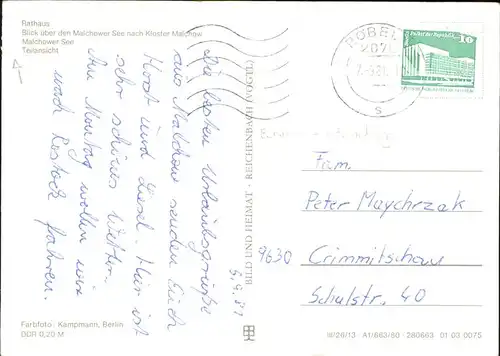 Rathaus
Blick über den Malchower See nach Kloster Malchow
Malchower See
Teilansicht
Die besten Urlaubsgrüße
aus Malchow senden Euch
Horst und Liesel. Hier ist
sehr schönes Wetter.
Am Montag wollen wir
nach Rostock fahren.
5.9.81
BILD UND HEIMAT · REICHENBACH (VOGTL)
RÖBEL
207
S
10
Fam.
Peter Maychrzak
9630 Crimmitschau
Schulstr. 40
Farbfoto: Kampmann, Berlin
DDR 0,20 M
III/26/13 A1/663/80 - 280663 01 03 0075